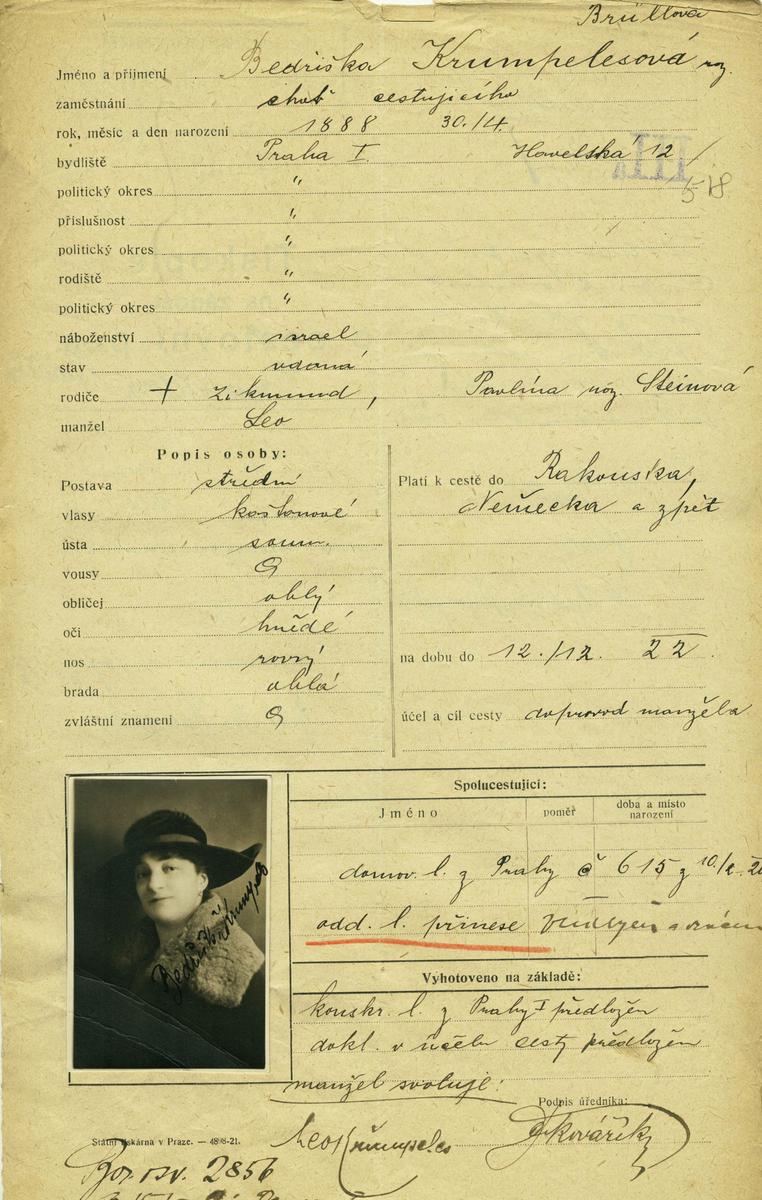 Brüllova
Jméno a přijmení Bedřiška Krumpelesová roz.
zaměstnání choť cestujícího
rok, měsíc a den narození 1888 30./4.
bydliště Praha I. Havelská 12 /
III.
518
politický okres "
příslušnost "
politický okres "
rodiště "
politický okres "
náboženství israel
stav vdaná
rodiče + Zikmund, Pavlína roz. Steinová
manžel Leo
Popis osoby:
Postava střední
vlasy kaštanové
ústa soum.
vousy
obličej oblý
oči hnědé
nos rovný
brada oblá
zvláštní znamení
Platí k cestě do Rakouska,
Německa a zpět
na dobu do 12./12. 22.
účel a cíl cesty doprovod manžela
Spolucestující:
Jméno poměr doba a místo narození
domov. l. z Prahy č 615 z 10./2.
odd. l. přinese
Vyhotoveno na základě:
konskr. l. z Prahy I předložen
dokl. o účelu cesty předložen
manžel svoluje:
Podpis úředníka:
Leo Krumpeles Kovářík
Státní tiskárna v Praze. — 4818-21.
2856